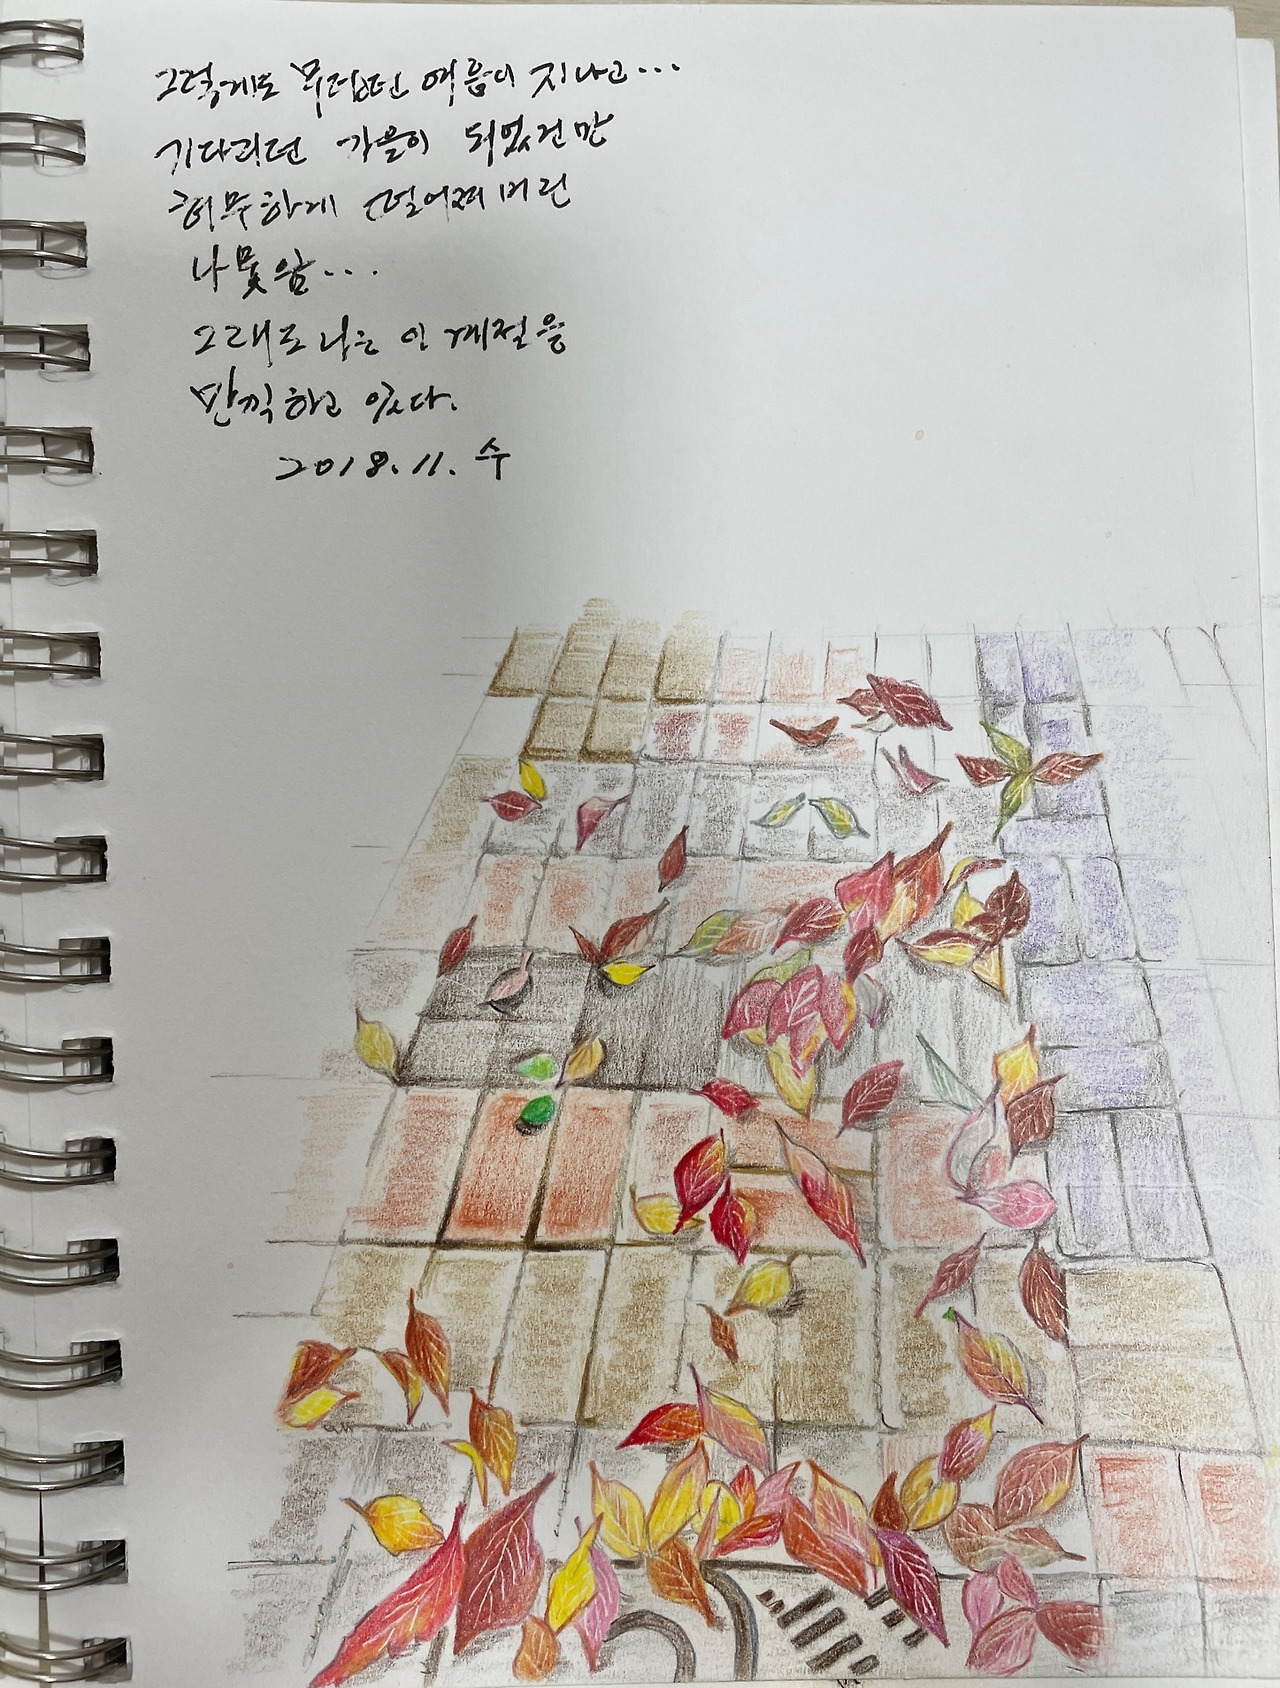 그렇게도 무덥던 여름이 지나고...
기다리던 가을이 되었건만
허무하게 떨어져 버린
나뭇잎...
그래도 나는 이 계절을
만끽하고 있다.
2018.11. 수